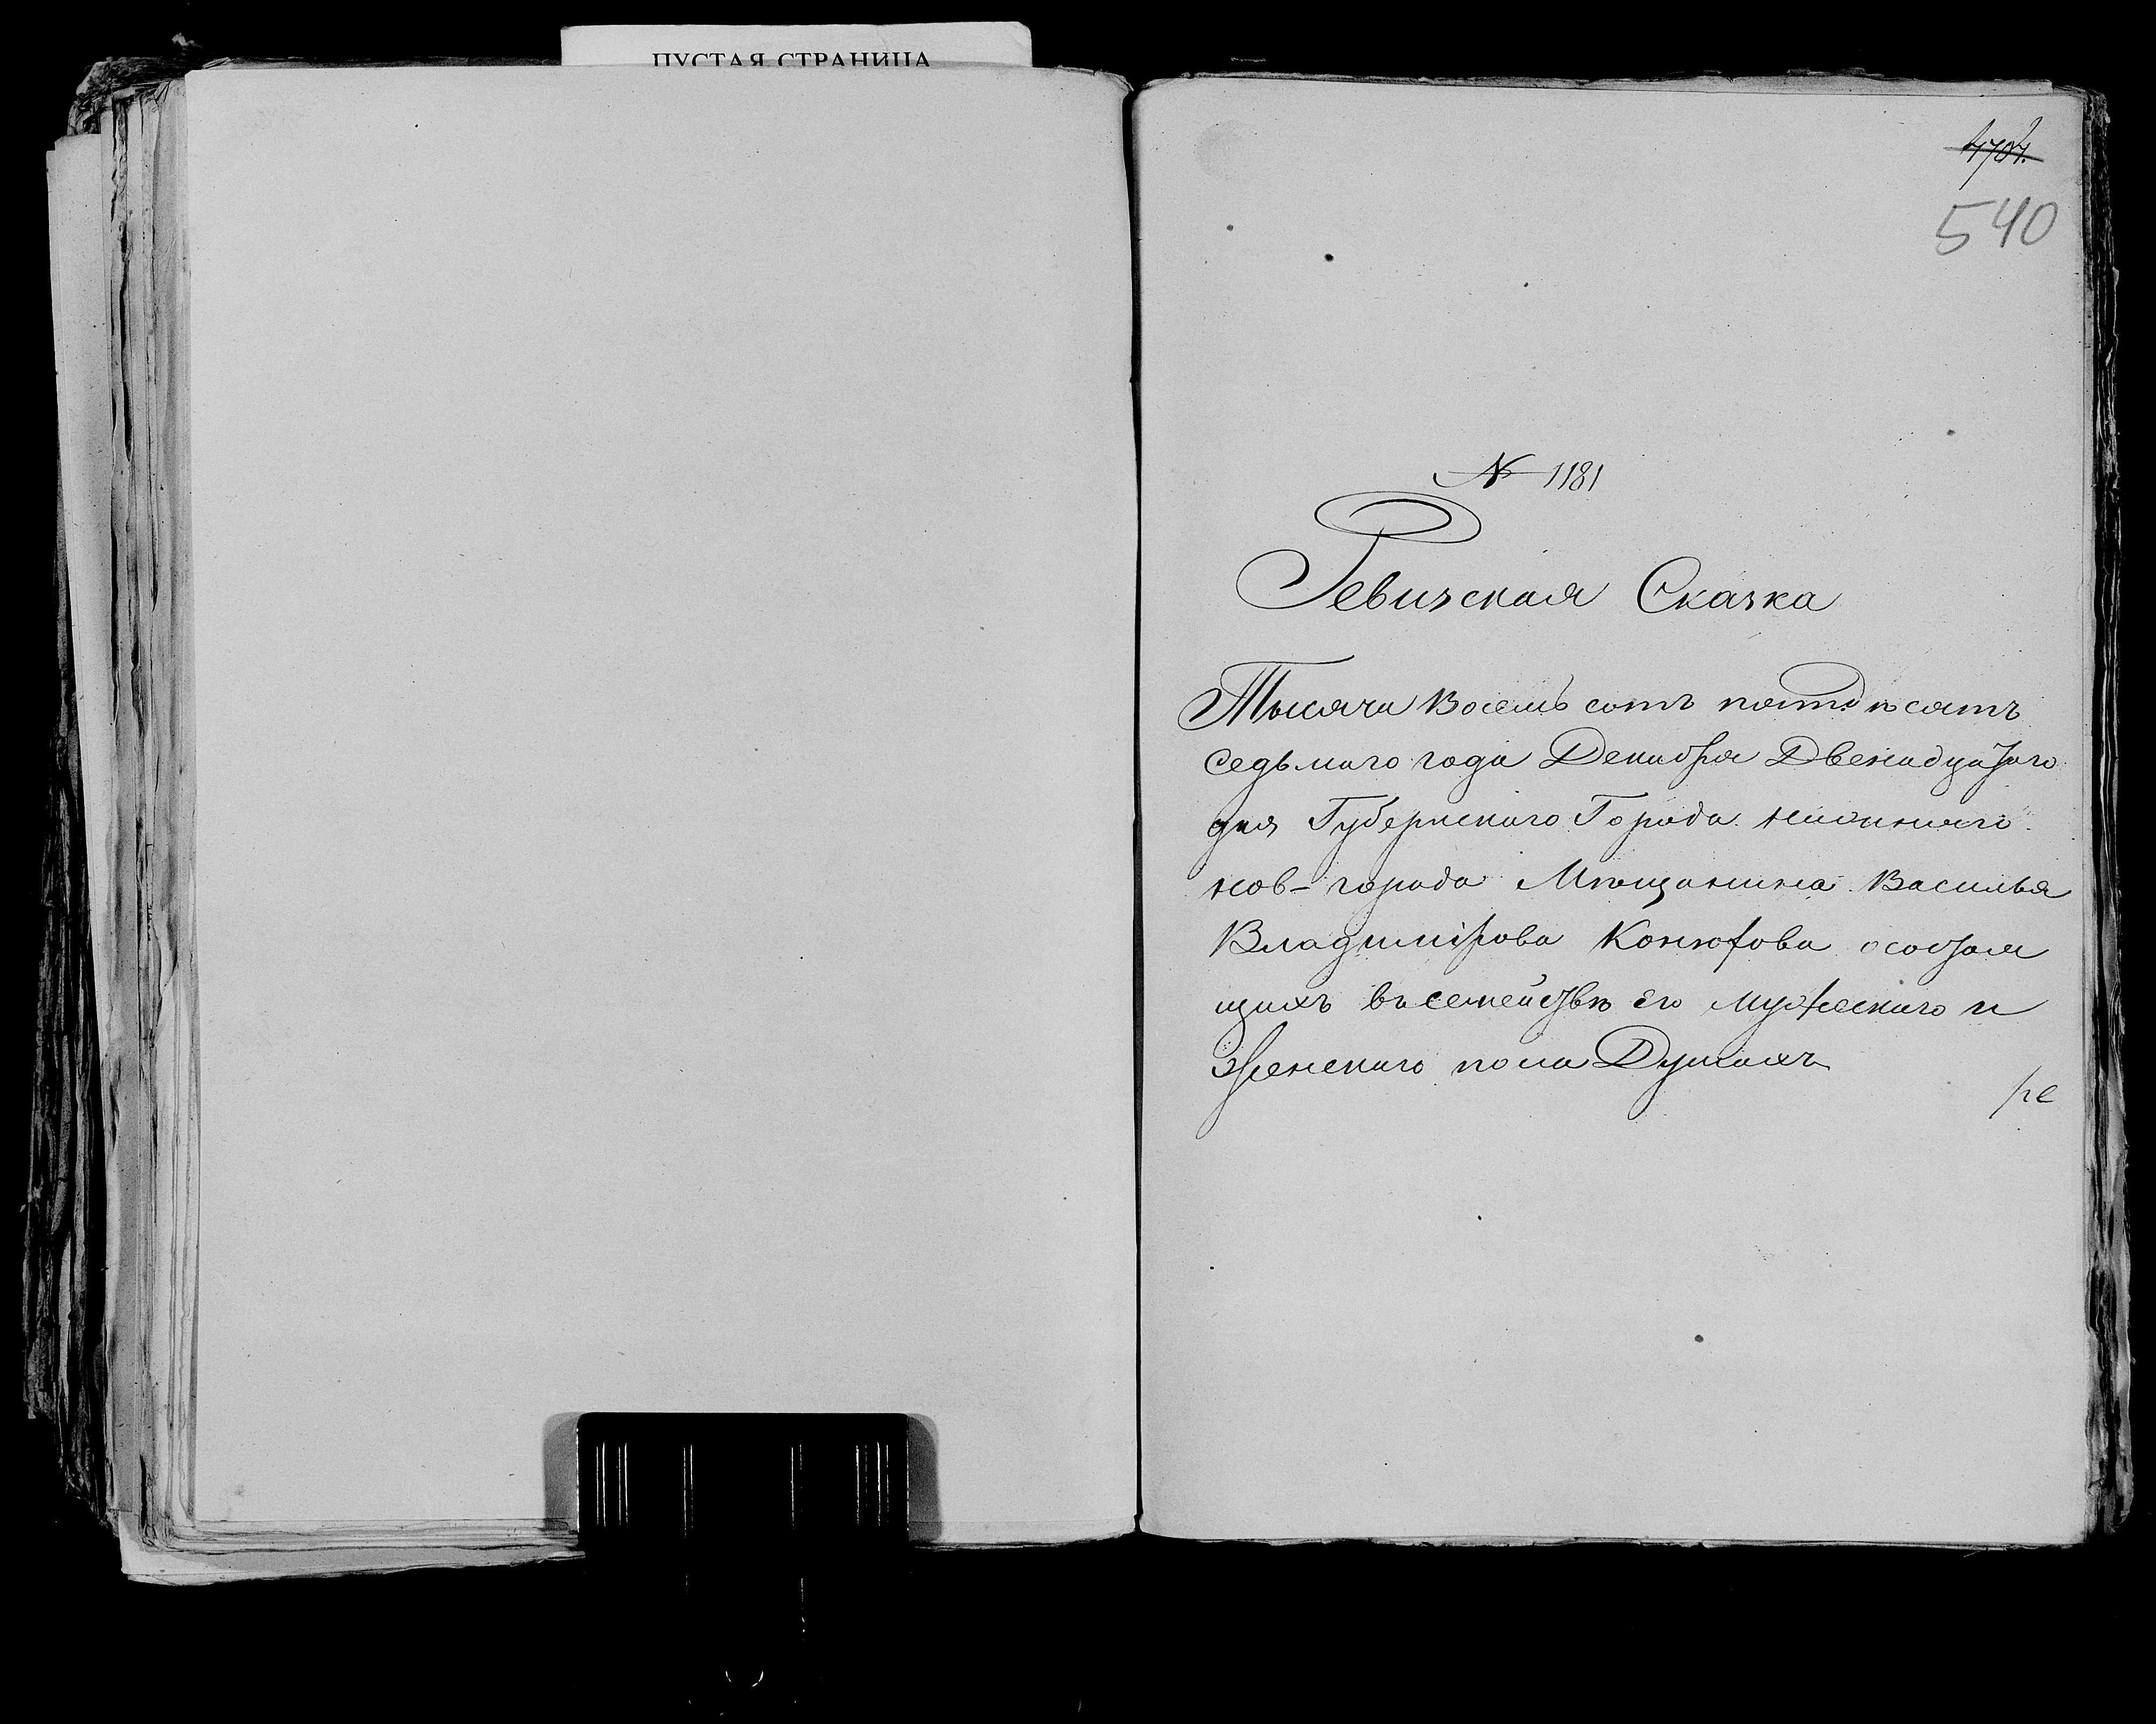 ПУСТАЯ СТРАНИЦА
540
№ 1181
Ревизская Сказка
Тысяча Восемь сотъ пятдѣсятъ
седьмаго года Декабря Двенадцатаго
дня Губернскаго Города нижняго
нов-города Мѣщанина Василья
Владимірова Конюхова о состоя
щихъ въ семействѣ его мужескаго и
женскаго пола Душахъ
ре